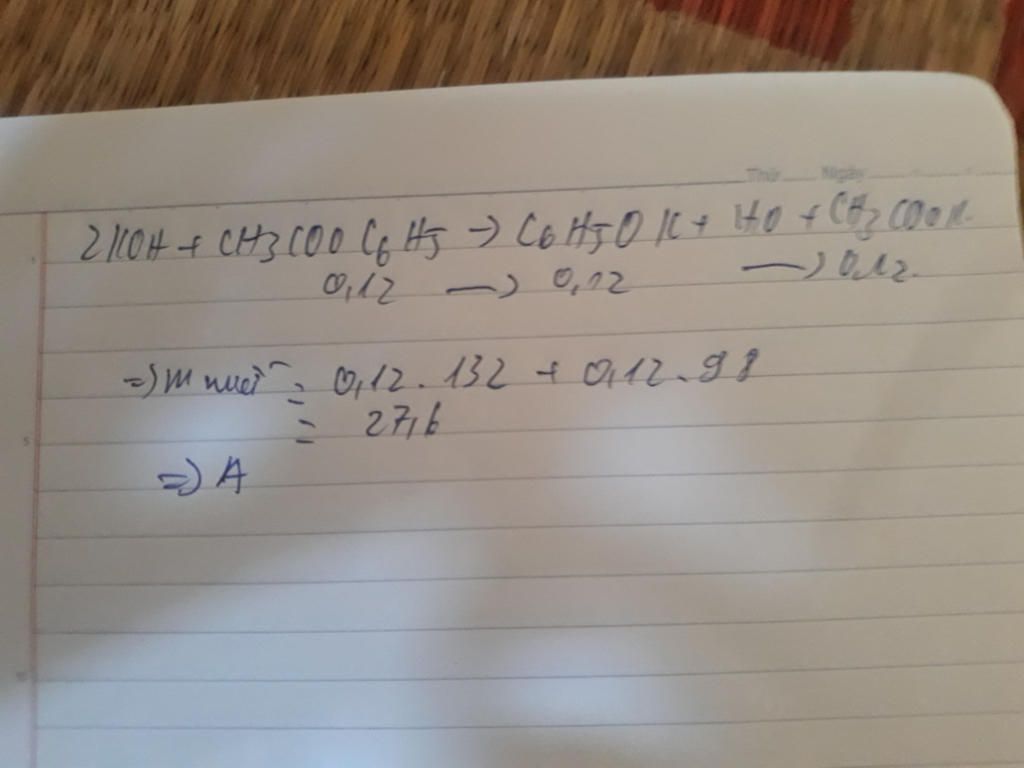 Thứ Ngày
2KOH + CH3COO C6H5 → C6H5OK + HO + CH3COOK
0,12 → 0,12 → 0,12.
=> m muối = 0,12 . 132 + 0,12 . 98
= 27,6
=> A
5
10